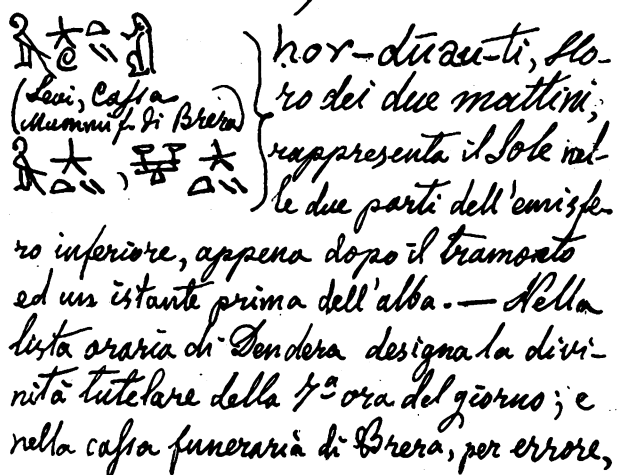 (Levi, Cassa
Mummif. di Brera)
hor-dūau-ti, Ho-
ro dei due mattini,
rappresenta il Sole nel-
le due parti dell'emisfe-
ro inferiore, appena dopo il tramonto
ed un istante prima dell'alba. — Nella
lista oraria di Dendera designa la divi-
nità tutelare della 7ª ora del giorno; e
nella cassa funeraria di Brera, per errore,